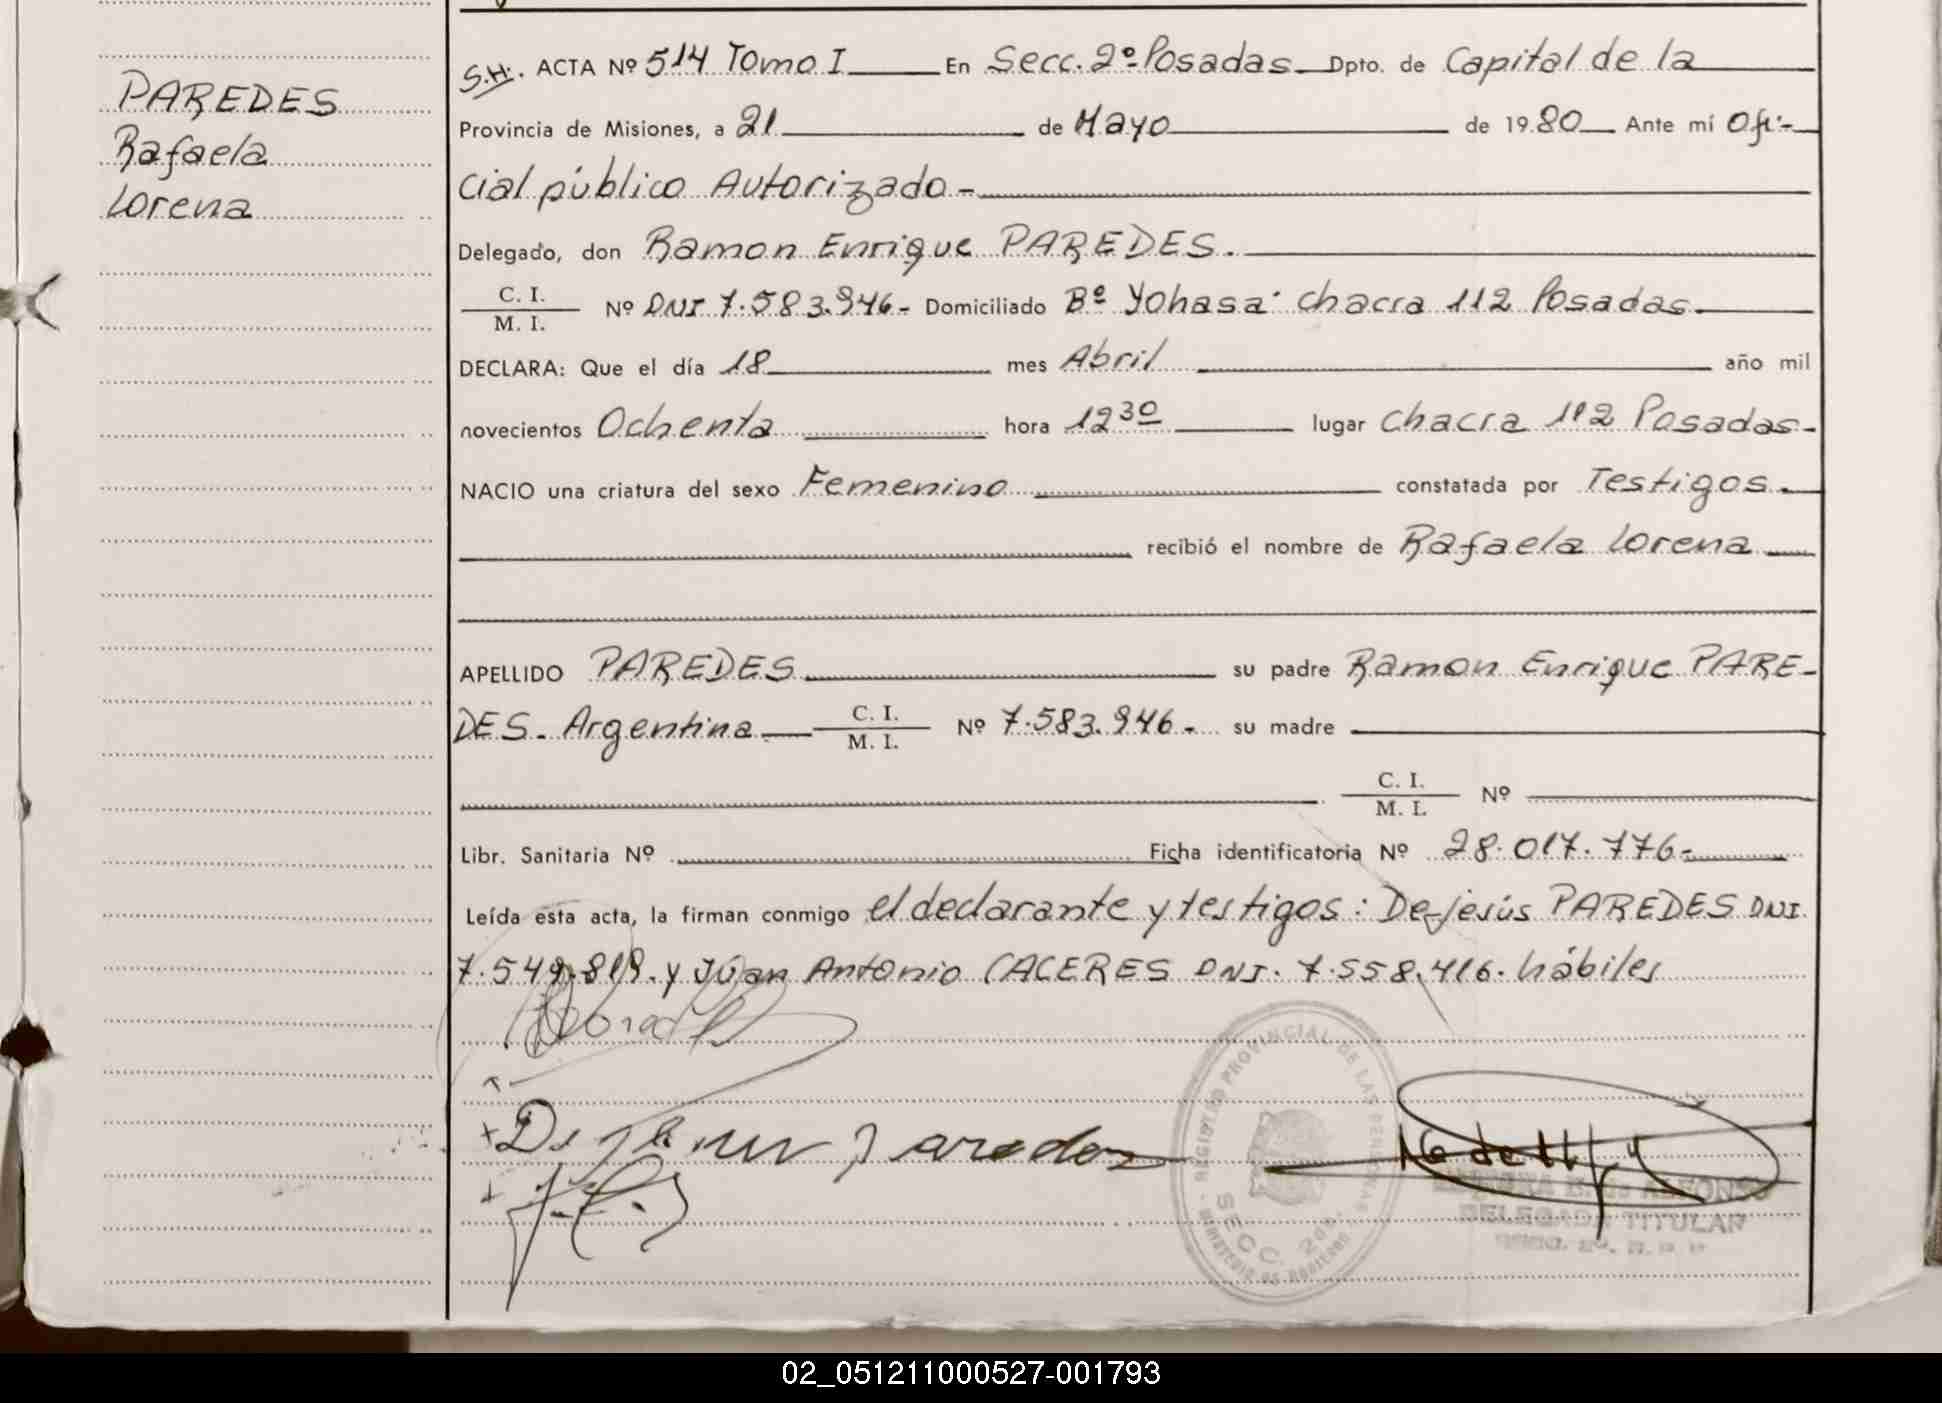 PAREDES
Rafaela
Lorena
S.H. ACTA Nº 514 Tomo I En Secc. 2º Posadas Dpto. de Capital de la
Provincia de Misiones, a 21 de Mayo de 1980 Ante mí Ofi-
cial público Autorizado -
Delegado, don Ramon Enrique PAREDES.
C. I.
M. I. Nº DNI 7.583.946.- Domiciliado Bº Yohasa chacra 112 Posadas.
DECLARA: Que el día 18 mes Abril año mil
novecientos Ochenta hora 12 30 lugar Chacra 112 Posadas-
NACIO una criatura del sexo Femenino constatada por Testigos.
recibió el nombre de Rafaela Lorena
APELLIDO PAREDES su padre Ramon Enrique PARE-
DES. Argentina C. I. M. I. Nº 7.583.946.- su madre
C. I.
M. I. Nº
Libr. Sanitaria Nº Ficha identificatoria Nº 28.017.776-
Leída esta acta, la firman conmigo el declarante y testigos: De Jesús PAREDES DNI.
7.549.819. y Juan Antonio CACERES DNI. 7.558.416. hábiles
REGISTRO PROVINCIAL DE LAS PERSONAS
SECC. 2da.
DE ALFONSO
DELEGADA TITULAR
02_051211000527-001793